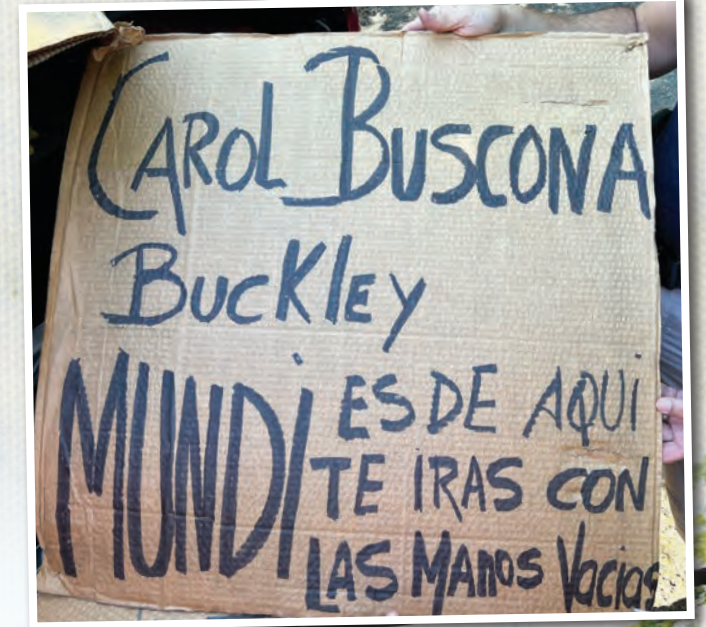 CAROL BUSCONA
BUCKlEY
MUNDi ES DE AQUI
TE IRAS CON
LAS MANOS VACIAS